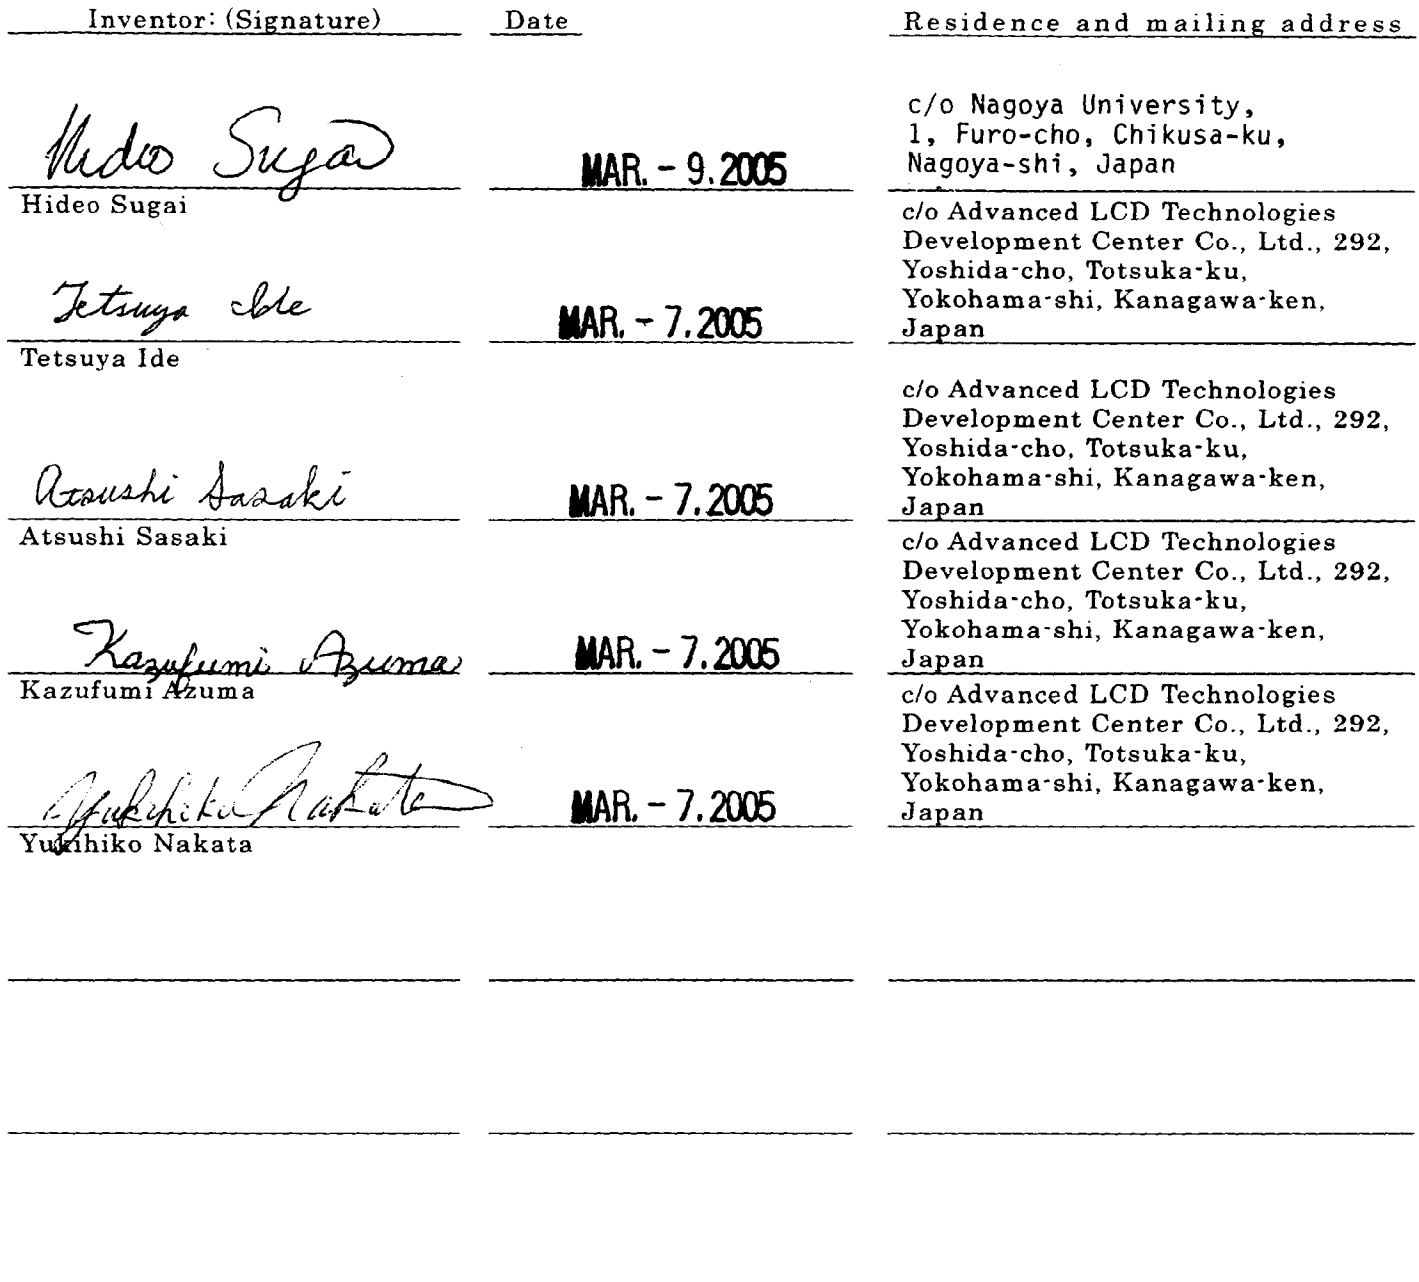 Inventor: (Signature) Date Residence and mailing address
Hideo Sugai MAR. - 9. 2005
c/o Nagoya University,
1, Furo-cho, Chikusa-ku,
Nagoya-shi, Japan
Hideo Sugai
Tetsuya Ide MAR. - 7. 2005
c/o Advanced LCD Technologies
Development Center Co., Ltd., 292,
Yoshida-cho, Totsuka-ku,
Yokohama-shi, Kanagawa-ken,
Japan
Tetsuya Ide
Atsushi Sasaki MAR. - 7. 2005
c/o Advanced LCD Technologies
Development Center Co., Ltd., 292,
Yoshida-cho, Totsuka-ku,
Yokohama-shi, Kanagawa-ken,
Japan
Atsushi Sasaki
Kazufumi Azuma MAR. - 7. 2005
c/o Advanced LCD Technologies
Development Center Co., Ltd., 292,
Yoshida-cho, Totsuka-ku,
Yokohama-shi, Kanagawa-ken,
Japan
Kazufumi Azuma
Yukihiko Nakata MAR. - 7. 2005
c/o Advanced LCD Technologies
Development Center Co., Ltd., 292,
Yoshida-cho, Totsuka-ku,
Yokohama-shi, Kanagawa-ken,
Japan
Yukihiko Nakata